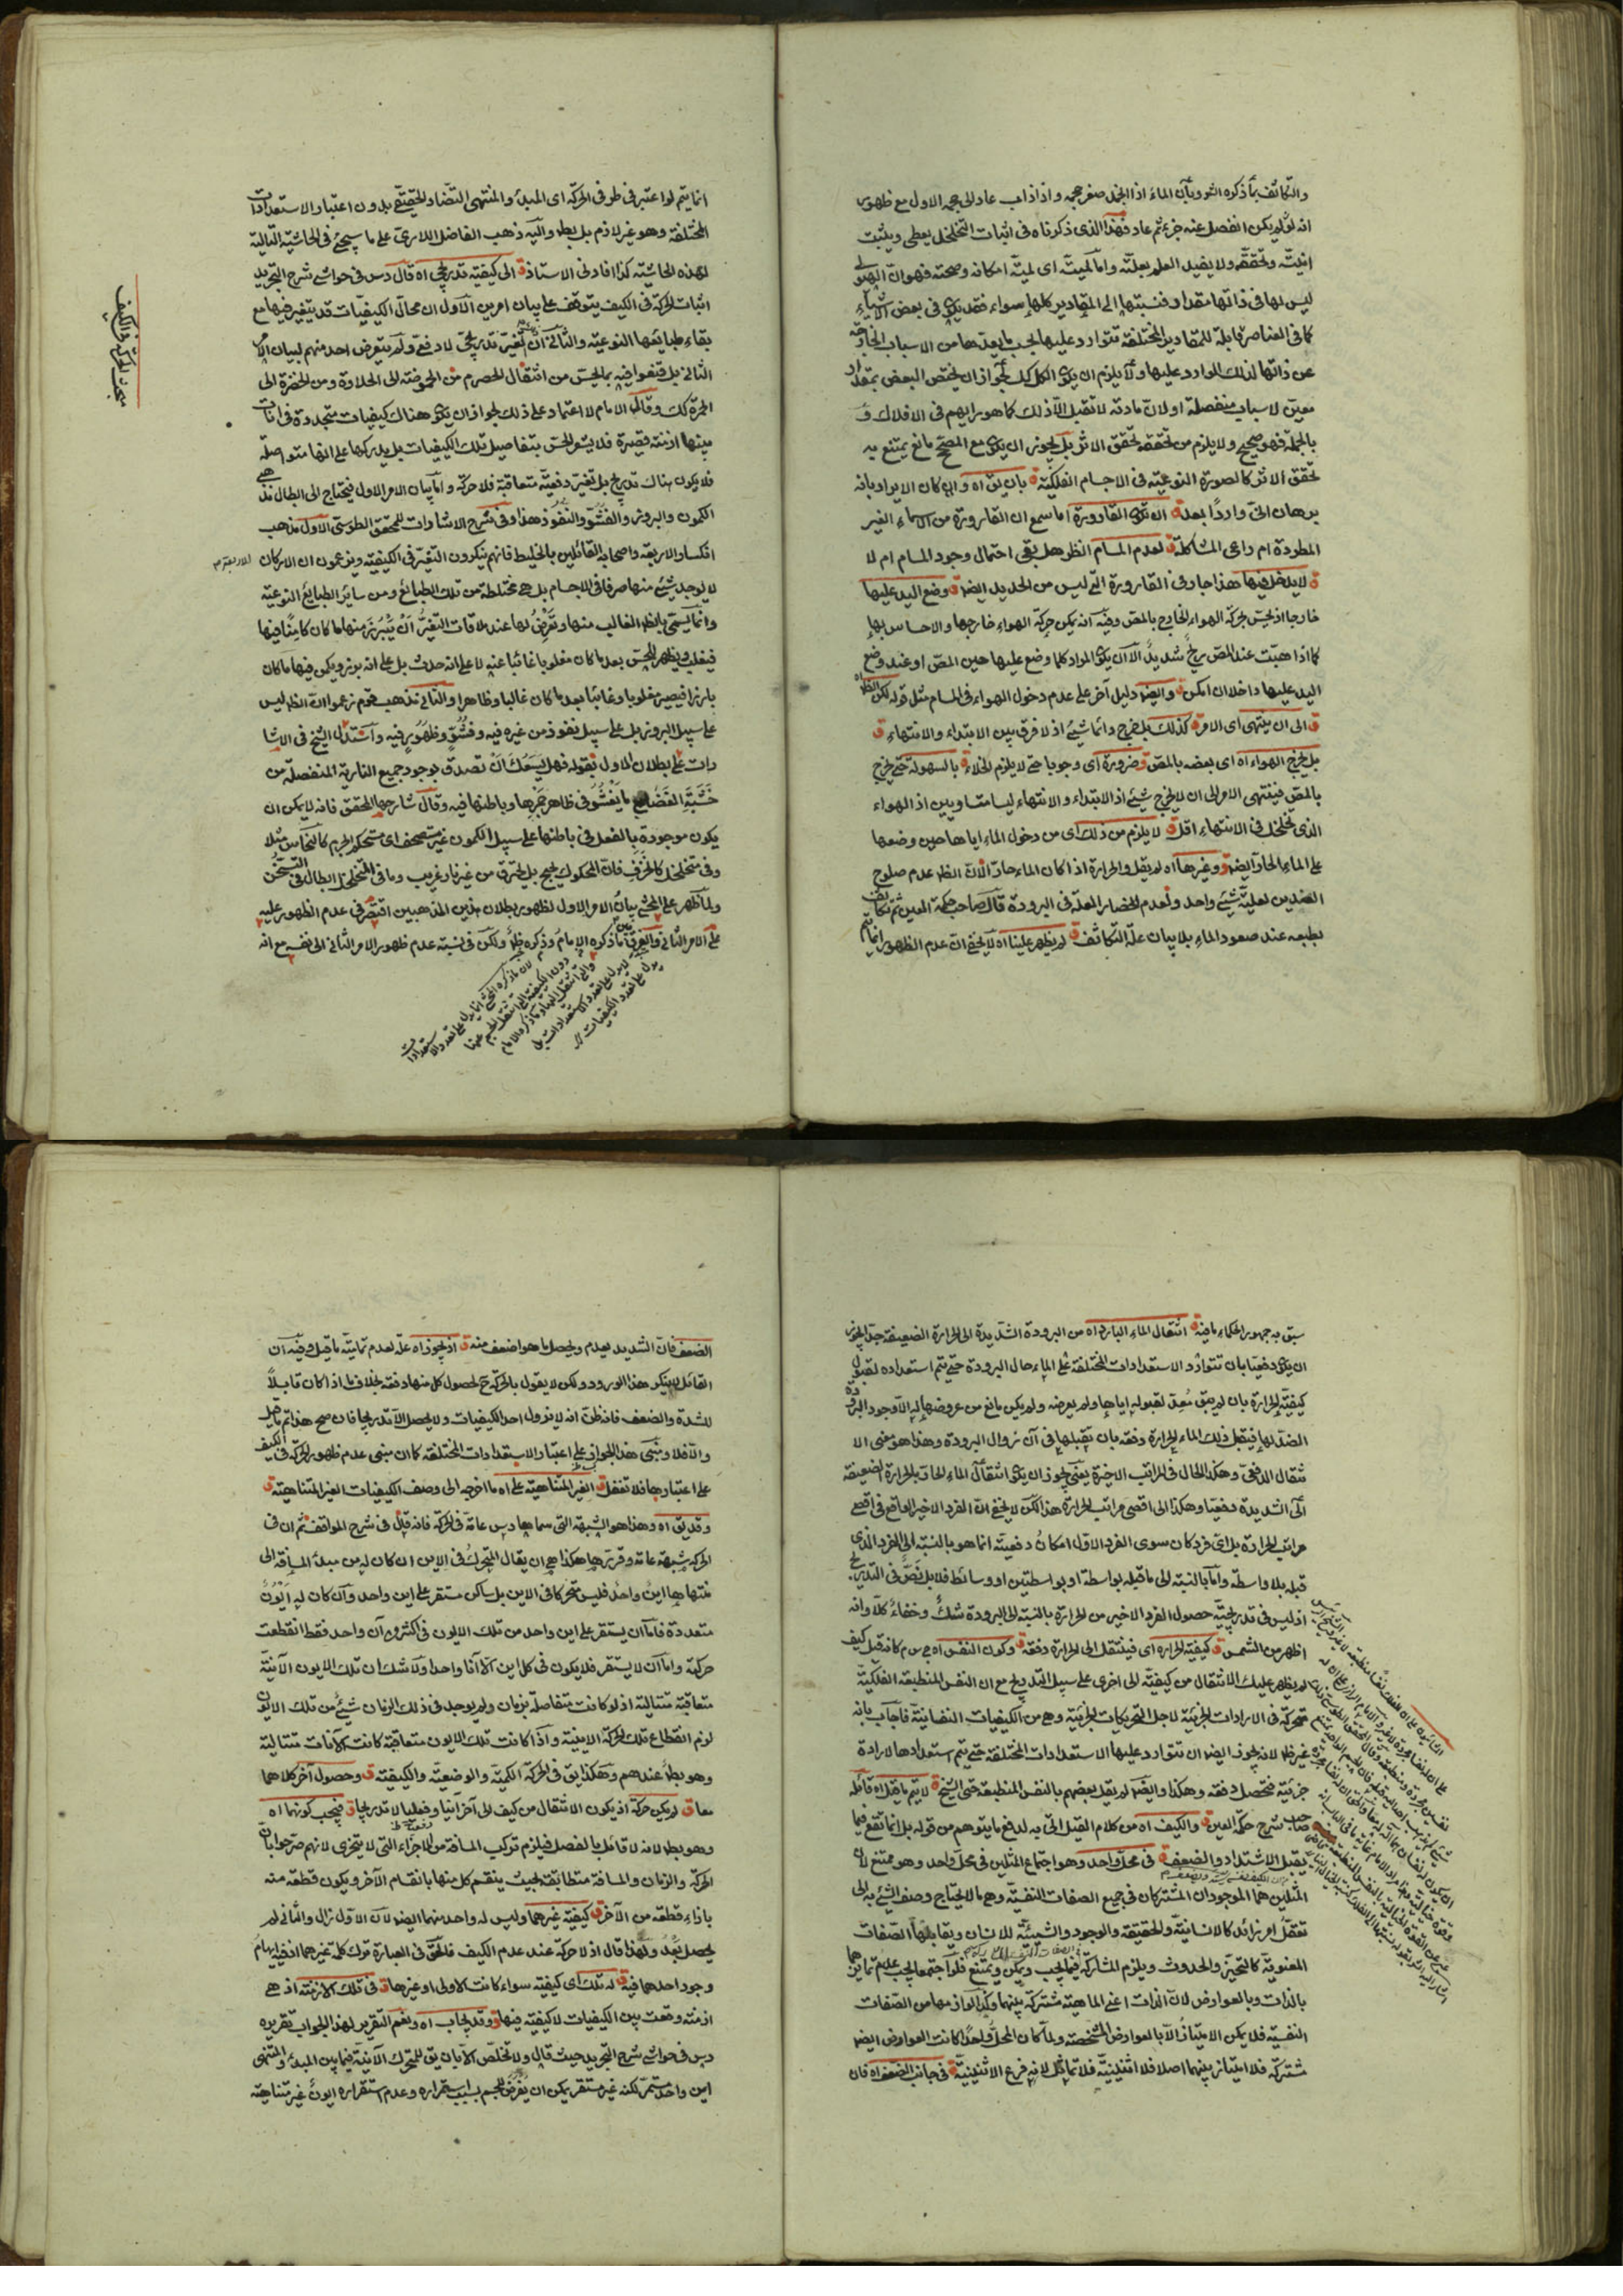 والتكاثف بما ذكره الشه وبأن الماء اذا انجمد صغر حجمه واذا ذاب عاد الى حجمه الاول مع ظهور
انه لو لم يكن انفصل عنه جزء ثم عاد فهذا الذى ذكرناه فى اثبات التخلخل يعطى ويثبت
انيته وتحققه ولا يفيد العلم بعلته واما لميته اى لمية امكانه وصحته فهو ان الهيولى
ليس لها فى ذاتها مقدار فنسبتها الى المقادير كلها سواء فقد يكون فى بعض الاشياء
كما فى العناصر قابلة للمقادير المختلفة تتوارد عليها بحسب ما يعدها من الاسباب الخارجة
عن ذاتها لذلك التوارد عليها ولا يلزم ان يكون الكل كك لجواز ان يختص البعض بمقدار
معين لاسباب منفصلة او لان مادته لا تقبل الا ذلك كما هو رايهم فى الافلاك و
بالجملة فهو صحيح ولا يلزم من تحققه تحقق الاثر بل يجوز ان يكون مع المصحح مانع يمتنع به
تحقق الاثر كالصورة النوعية فى الاجسام الفلكية ق بان يق اه وان كان الايراد بانه
برهان انى واردا بعد ق ان تكون القارورة اما سمع ان القارورة من الاسماء الغير
المطردة ام راعى المشاكلة ق لعدم المسام الظ هل بقى احتمال وجود المسام ام لا
ق لا يدخل فيها هذا جار فى القارورة التى ليس من الحديد ايضا ق وضع اليد عليها
خارجا اذ يحس بحركة الهواء الخارج بالمص وفيه انه يمكن حركة الهواء خارجها والاحساس بها
كما اذا هبت عند المص ريح شديد الا ان يكون المراد كلما وضع عليها حين المص او عند وضع
اليد عليها داخلا ان امكن ق وايضا دليل آخر على عدم دخول الهواء فى المسام مثل قوله لكن الظاه
ق الى ان ينتهى اى الامر ق كذلك بل يخرج دائما شيئ اذ لا فرق بين الابتداء والانتهاء ق
بل يخرج الهواء اه اى بعضه بالمص ق وضرورة اى وجوبا حتى لا يلزم الخلاء ق بالسهولة حتى يخرج
بالمص فينتهى الامر الى ان لا يخرج شيئ اذ الابتداء والانتهاء ليسا متساويين اذ الهواء
الذى تخلخل فى الانتهاء اقل ق لا يلزم من ذلك اى من دخول الماء اياها حين وضعها
على الماء الحار ايضا ق وغيرها اه لم يقل والحرارة اذا كان الماء حارا لان الظ عدم صلوح
الضدين لعلية شيئ واحد ولعدم انحصار العلة فى البرودة قال صاحب حكمة العين ثم تكاثف
بطبعه عند صعود الماء بلا بيان علة التكاثف ق لم يظهر علينا اه لا يخفى ان عدم الظهور انما يتم
انما يتم لو اعتبر فى طرفى الحركة اى المبدئ والمنتهى التضاد الحقيقى بدون اعتبار الاستعدادات
المختلفة وهو غير لازم بل بط واليه ذهب الفاضل اللارى على ما سيجئ فى الحاشية التالية
لهذه الحاشية كذا افاد فى الاستاذ ق الى كيفية تدريجى اه قال دس فى حواشى شرح التجريد
اثبات الحركة فى الكيف يتوقف على بيان امرين الاول ان محال الكيفيات قد يتغير فيها مع
بقاء طبايعها النوعية والثانى ان التغير تدريجى لا دفعى ولم يتعرض احد منهم لبيان الامر
الثانى بل قنعوا فيه بما يحس من انتقال الحصرم من الحموضة الى الحلاوة ومن الخضرة الى
الحمرة كك وقال الامام لا اعتماد على ذلك لجواز ان يكون هناك كيفيات متجددة فى آنات
بينها ازمنة قصيرة فلا يشعر الحس بتفاصيل تلك الكيفيات بل يدركها على انها متواصلة
فلا يكون هناك تدريج بل تغير دفعية متعاقبة فلا حركة واما بيان الامر الاول فيحتاج الى ابطال مذهبى
الكمون والبروز والفشو والنفوذ هذا وفى شرح الاشارات للمحقق الطوسى الاول مذهب
انكساغورس واصحابه القائلين بالخليط فانهم ينكرون التغير فى الكيفية ويزعمون ان الاركان
الاربعة
لا يوجد شيئ منها صرفا فى الاجسام بل هى مختلطة من تلك الطبائع ومن سائر الطبايع النوعية
وانما يسمى بالظ الغالب منها وتعرض لها عند ملاقات التغير ان يبرز منها ما كان كامنا فيها
فيغلب ويظهر للحس بعد ما كان مغلوبا غائبا عنه لا على انه حدث بل على انه برز ويكمن فيها ما كان
بارزا فيصير مغلوبا وغائبا بعد ما كان غالبا وظاهرا والثانى مذهب قوم زعموا ان الظ ليس
على سبيل البروز بل على سبيل نفوذ من غيره فيه وفشو وظهور فيه واستدل الشيخ فى الاشا
رات على بطلان الاول بقوله فهل يسعك ان تصدق بوجود جميع النارية المنفصلة من
خشبة الغضا مع ما يفشو فى ظاهر جمرها وباطنها فيه وقال شارحها المحقق فانه لا يمكن ان
يكون موجودة بالفعل فى باطنها على سبيل الكمون غير مستحصف اى مستحكم الجرم كالنحاس مثلا
وفى متخلخل كالخزف فان المحكوك يحمى بل يحترق من غير نار غريب وما فى المتخلخل ابطال فى التسخن
ولما ظهر على المحشى بيان الامر الاول لظهور بطلان هذين المذهبين اقتصر فى عدم الظهور عليه
على الامر الثانى والفرق بين ما ذكره الامام وذكره ظ ولكن فى نسبة عدم ظهور الامر الثانى الى نفسه مع انه
لان ما ذكره المحشى انما يدل على تعدد الاستعدادات
دون الكيفية التى انتقل الجسم عنها
والتى انتقل اليها وما ذكره الامام
لا يدل على تعدد الاستعدادات بل
يدل على تعدد الكيفيات
مبحث الحركة فى الكيف
سبق به جمهور الحكماء ما فيه ق انتقال الماء البارد اه من البرودة الشديدة الى الحرارة الضعيفة جدا لجواز
ان يكون دفعيا بان تتوارد الاستعدادات المختلفة على الماء حال البرودة حتى يتم استعداده لقبول
كيفية الحرارة بان لم يبق معد لقبوله اياها ولم يعرضه ولم يكن مانع من عروضها له الا وجود البرودة
الضد لها فيقبل ذلك الماء الحرارة دفعة بان يقبلها فى آن زوال البرودة وهذا هو معنى الا
نتقال الدفعى وهكذا الحال فى المراتب الاخيرة يعنى يجوز ان يكون انتقال الماء الحار بالحرارة الضعيفة
الى الشديدة دفعيا وهكذا الى اقصى مراتب الحرارة هذا لكن لا يخفى ان الفرد الاخير الواقع فى اقصى
مراتب الحرارة بل اى فرد كان سوى الفرد الاول امكان دفعيته انما هو بالنسبة الى الفرد الذى
قبله بلا واسطة واما بالنسبة الى ما قبله بواسطة او بواسطتين او وسائط فلا بل نص فى التدريج
اذ ليس فى تدريجية حصول الفرد الاخير من الحرارة بالنسبة الى البرودة شك وخفاء كلا وانه
اظهر من الشمس ق كيفية الحرارة اى فينتقل الى الحرارة دفعة ق وكون النفس اه ج س م كانه قيل كيف
لم يظهر عليك الانتقال من كيفية الى اخرى على سبيل التدريج مع ان النفس المنطبعة الفلكية
متحركة فى الارادات الجزئية لاجل التحريكات الجزئية وهى من الكيفيات النفسانية فاجاب بانه
غير ظ لانه يجوز ايضا ان تتوارد عليها الاستعدادات المختلفة حتى يتم استعدادها لارادة
جزئية فتحصل دفعة وهكذا وايضا لم يقل بعضهم بالنفس المنطبعة حتى الشيخ ق لا يتم ما قيل اه قائله
صاحب شرح حكمة العين ق والكيف اه من كلام القيل اتى به لدفع ما يتوهم من قوله بل انما تقع فيما
يقبل الاشتداد والضعف ق فى محل واحد وهو اجتماع المثلين فى محل واحد وهو ممتنع لان
المثلين هما الموجودان المشتركان فى جميع الصفات النفسية وهى ما لا يحتاج وصف الشيئ به الى
تعقل امر زائد كالانسانية والحقيقة والوجود والشيئية للانسان ويقابلها الصفات
المعنوية كالتحيز والحدوث ويلزم المشاركة فيما يجب ويمكن ويمتنع فلو اجتمعا يجب عدم تمايزهما
بالذات وبالعوارض لان الذات اعنى الماهية مشتركة بينهما وكذا لوازمها من الصفات
النفسية فلا يمكن الامتياز الا بالعوارض المشخصة ولما كان المحل واحدا كانت العوارض ايضا
مشتركة فلا امتياز بينهما اصلا فلا اثنينية فلا تماثل لانه فرع الاثنينية ق فى جانب الضعف اه فان
الضعف فان الشديد يعدم ويحصل ما هو اضعف منه ق اذ يجوز اه علة لعدم تمامية ما قيل وفيه ان
القائل لا ينكر هذا الورود ولكن لا يقول بالحركة ح لحصول كل منها دفعة بخلاف ما اذا كان قابلا
للشدة والضعف فانه ظن انه لا يزول احد الكيفيات ولا يحصل الا تدريجا فان صح هذا تم ما قيل
والا فلا ومبنى هذا الجواز على اعتبار الاستعدادات المختلفة كما ان مبنى عدم ظهور الحركة فى الكيف
على اعتبارها فلا تغفل ق الغير المتناهية على اه ما اخرجه الى وصف الكيفيات الغير المتناهية ق
وقد يق اه وهذا هو الشبهة التى سماها دس عامة فى الحركة فانه قال فى شرح المواقف ثم ان فى
الحركة شبهة عامة وقررها هكذا هى ان يقال المتحرك فى الاين ان كان له من مبدئ المسافة الى
منتهاها اين واحد فليس متحركا فى الاين بل ساكن مستقر على اين واحد وان كان له ايون
متعددة فاما ان يستقر على اين واحد من تلك الايون فى اكثر من آن واحد فقط انقطعت
حركة واما ان لا يستقر فلا يكون فى كل اين الا آنا واحدا ولا شك ان تلك الايون الآنية
متعاقبة متتالية اذ لو كانت متفاصلة بزمان ولم يوجد فى ذلك الزمان شيئ من تلك الايون
لزم انقطاع تلك الحركة الاينية واذا كانت تلك الايون متعاقبة كانت الآنات متتالية
وهو بط عندهم وهكذا يق فى الحركة الكمية والوضعية والكيفية ق وحصول آخر كلاهما
معا ق لم يكن حركة اذ يكون الانتقال من كيف الى آخر آنيا ودفعيا لا تدريجا ق فيجب كونهما اه
وهو بط لانه لا قائل بالفصل فيلزم تركب المسافة من الاجزاء التى لا يتجزى لانهم صرحوا بان
الحركة والزمان والمسافة متطابقة بحيث ينقسم كل منها بانقسام الآخر ويكون قطعة منه
بازاء قطعة من الآخر ق كيفية غيرهما وليس له واحد منهما ايضا لان الاول زال والثانى لم
يحصل بعد ولهذا قال اذ لا حركة عند عدم الكيف فالحق فى العبارة ترك كلمة غيرهما اذ فيه ايهام
وجود احدهما فيه ق له تلك اى كيفية سواء كانت الاولى او غيرها ق فى تلك الازمنة اذ هى
ازمنة وقعت بين الكيفيات لا كيفية فيها ق وقد يجاب اه ونعم التقرير لهذا الجواب تقريره
دس فى حواشى شرح التجريد حيث قال ولا مخلص الا بان يق للمتحرك الآنية فيما بين المبدئ والمنتهى
اين واحد مستمر لكنه غير مستقر يمكن ان يفرض للجسم بسبب استمراره وعدم استقراره ايون غير متناهية